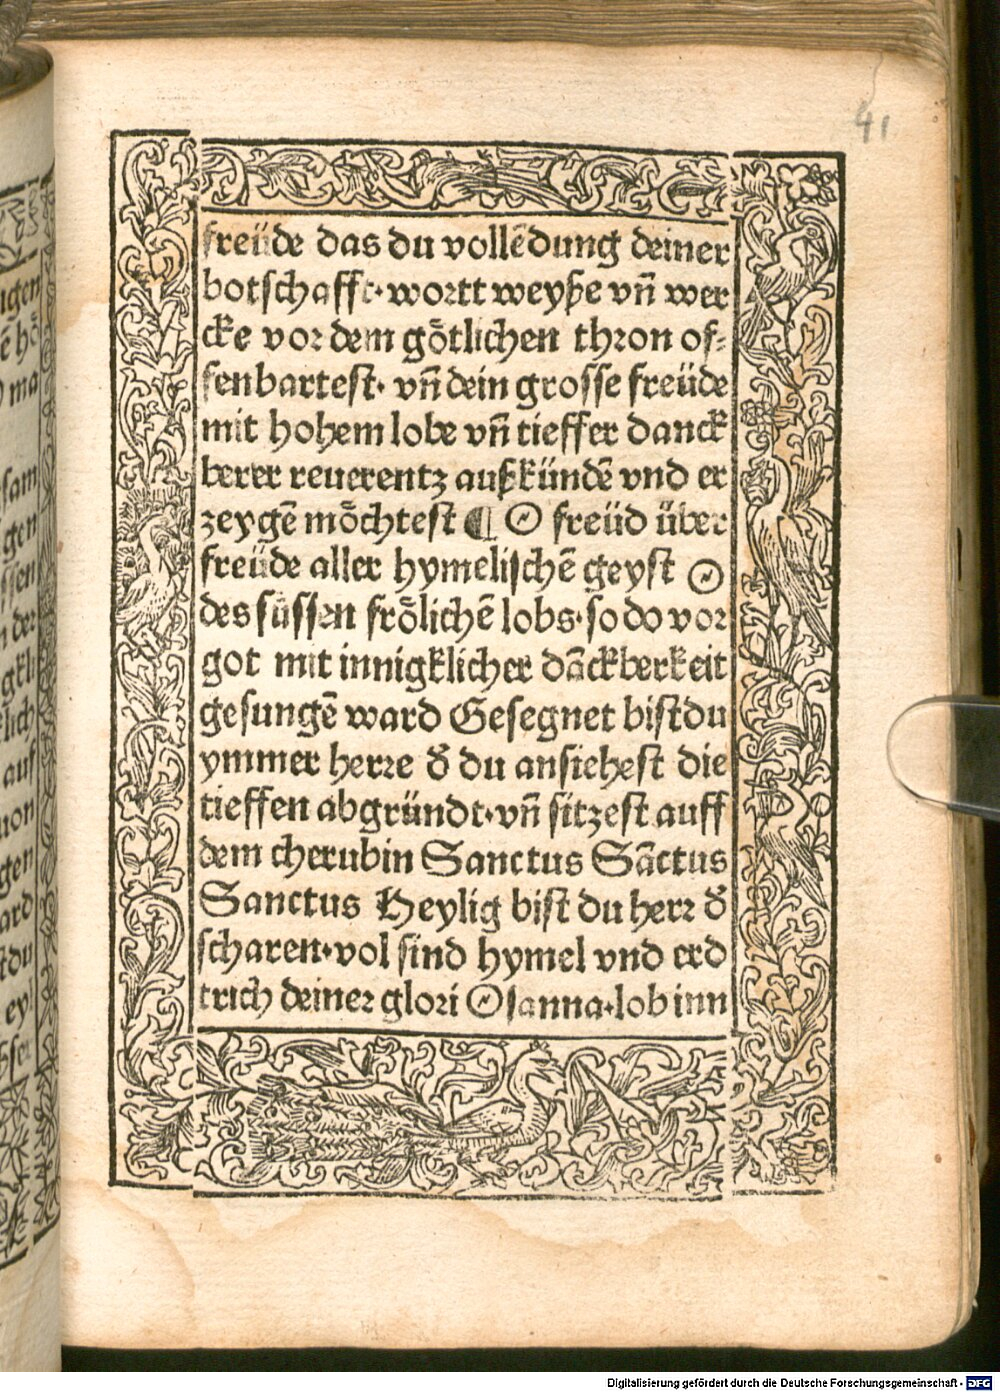 41
freüde das du vollēdung deiner
botschafft· wortt weyße vn̄ wer
cke vor dem götlichen thron of⸗
fenbartest· vn̄ dein grosse freüde
mit hohem lobe vn̄ tieffer danck
berer reuerentz außkündē vnd er
zeygē möchtest ¶ O freüd über
freüde aller hymelischē geyst O
des süssen frölichē lobs· so do vor
got mit innigklicher dāckberkeit
gesungē ward Gesegnet bist du
ymmer herre d̄ du ansiehest die
tieffen abgründt· vn̄ sitzest auff
dem cherubin Sanctus Sāctus
Sanctus Heylig bist du herr d̄
scharen· vol sind hymel vnd erd
trich deiner glori Osanna· lob inn
Digitalisierung gefördert durch die Deutsche Forschungsgemeinschaft - DFG